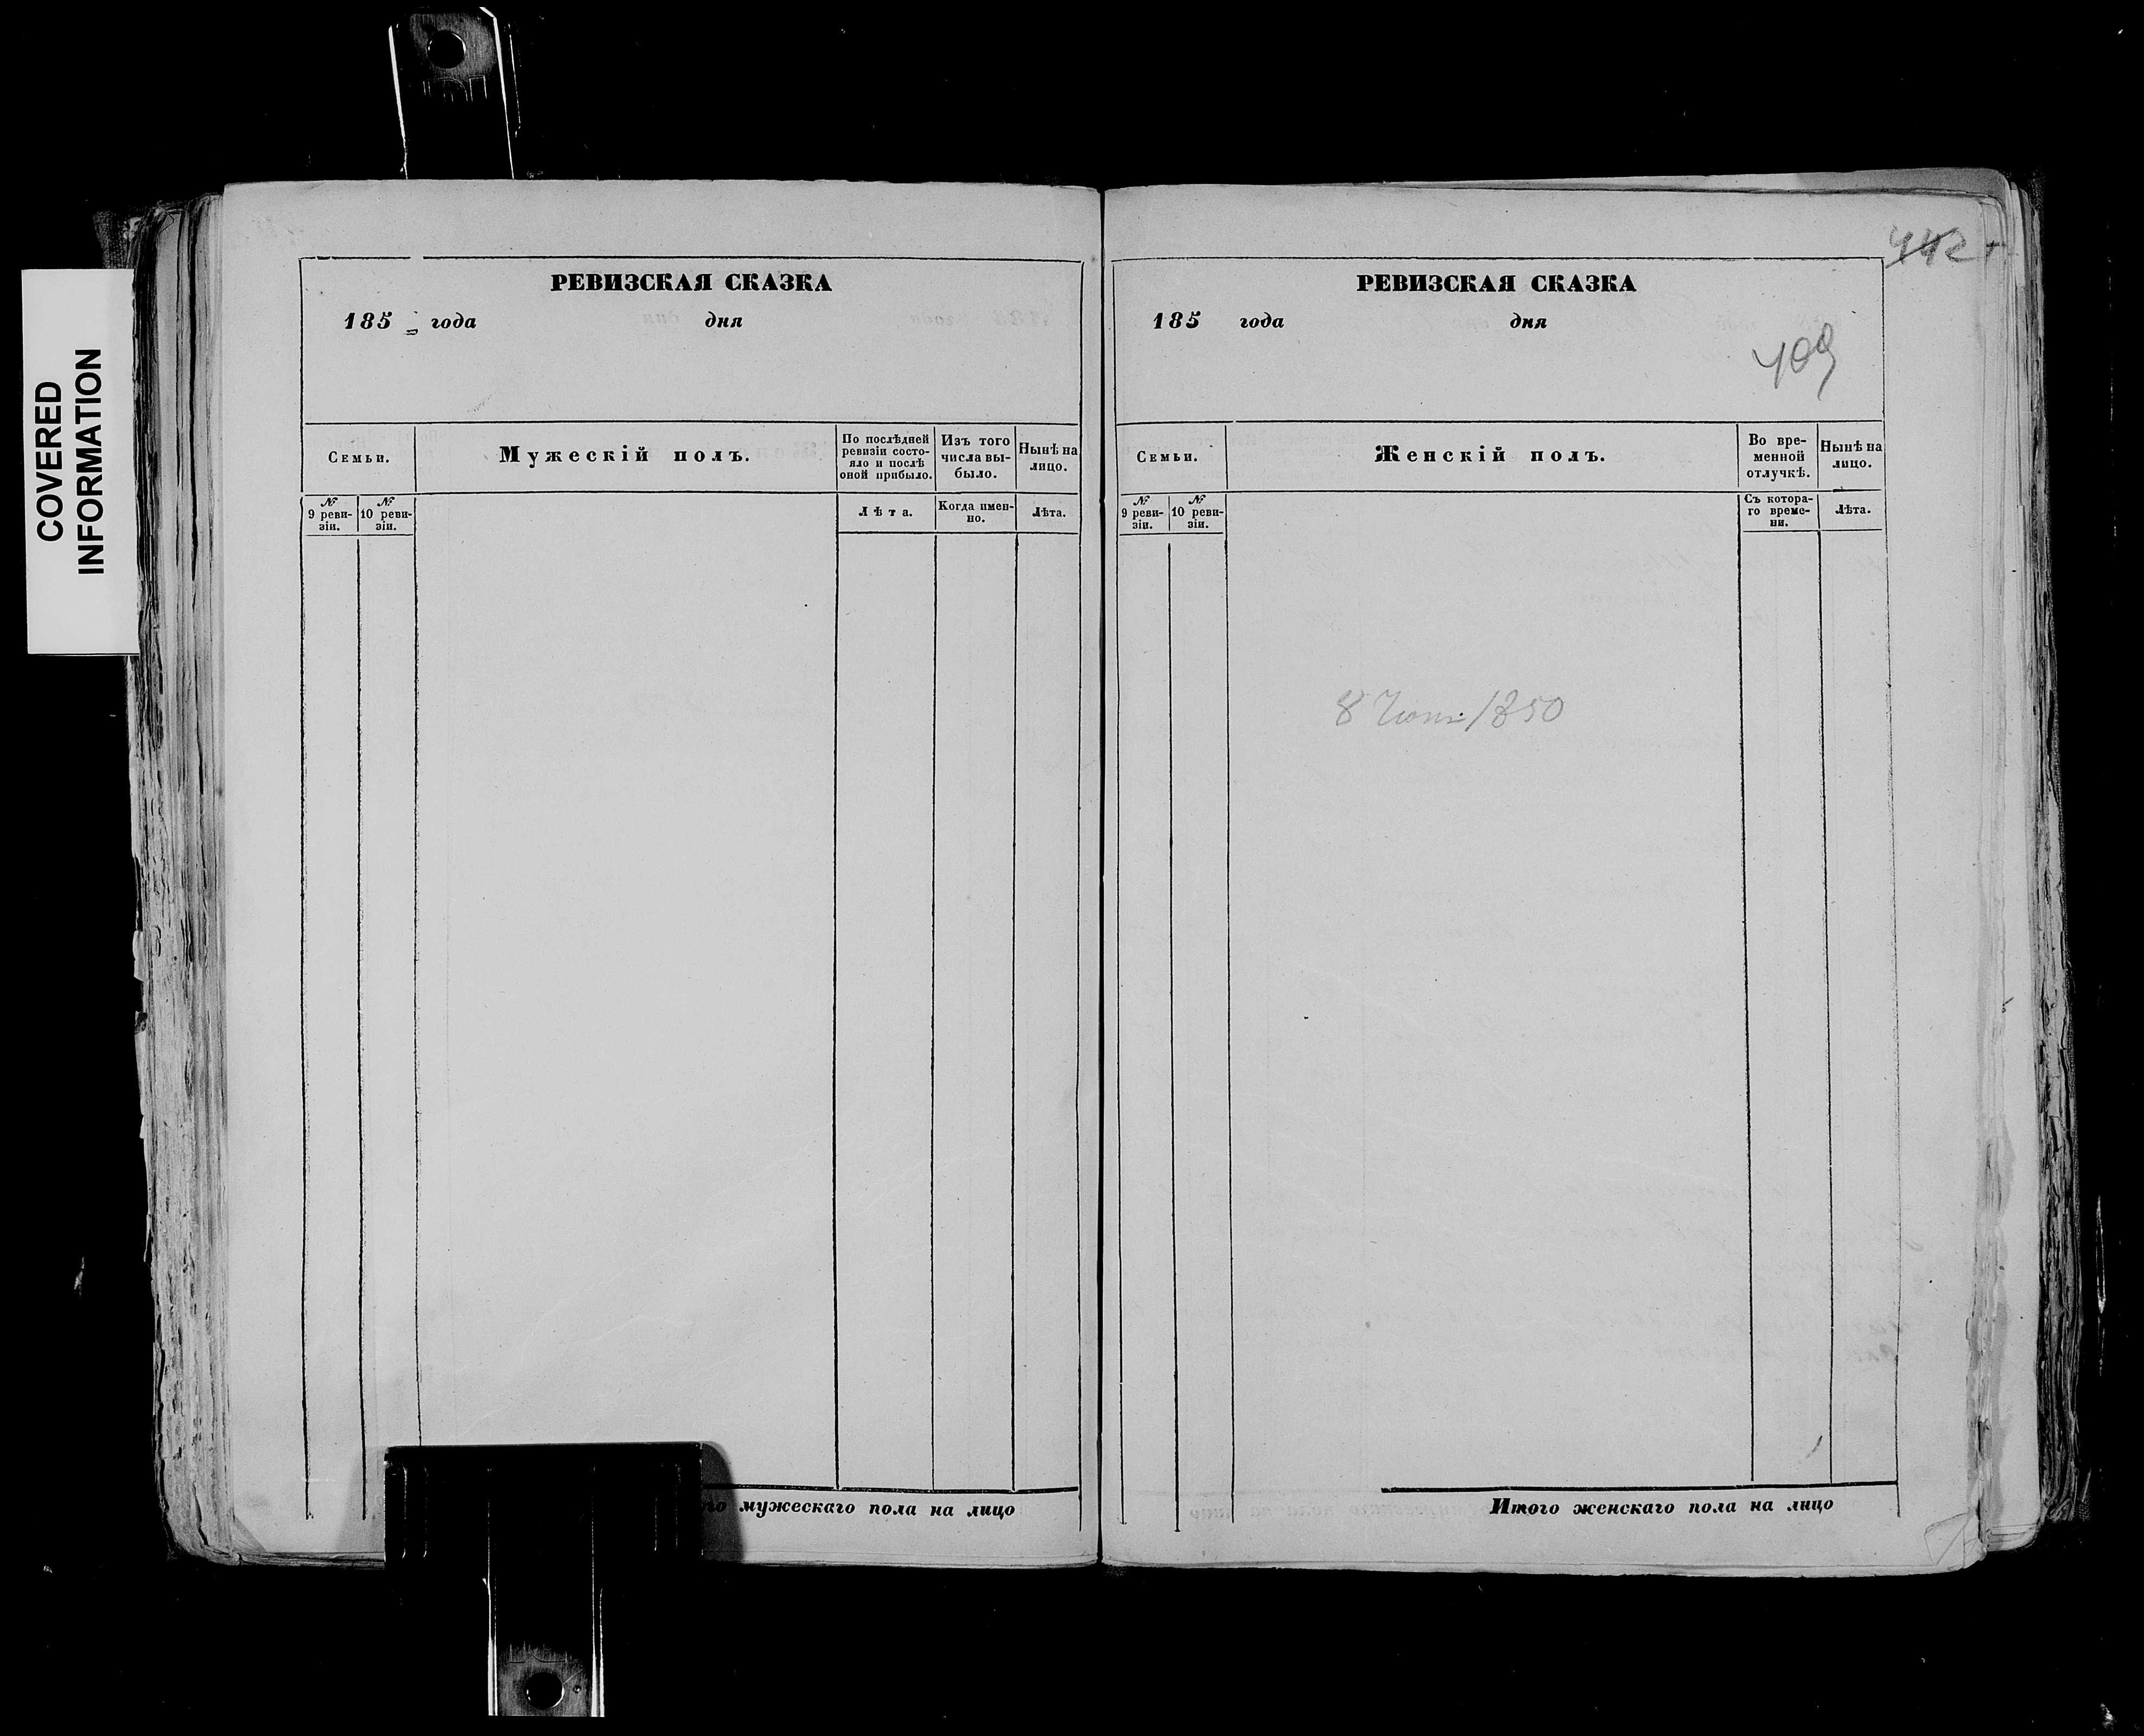 COVERED
INFORMATION
РЕВИЗСКАЯ СКАЗКА
185 года дня
Семьи.
Мужескій полъ.
По послѣдней ревизіи состояло и послѣ оной прибыло.
Изъ того числа выбыло.
Нынѣ на лицо.
№ 9 ревизіи.
№ 10 ревизіи.
Лѣта.
Когда именно.
Лѣта.
мужескаго пола на лицо
442
РЕВИЗСКАЯ СКАЗКА
185 года дня
409
Семьи.
Женскій полъ.
Во временной отлучкѣ.
Нынѣ на лицо.
№ 9 ревизіи.
№ 10 ревизіи.
Съ котораго времени.
Лѣта.
8 1850
Итого женскаго пола на лицо